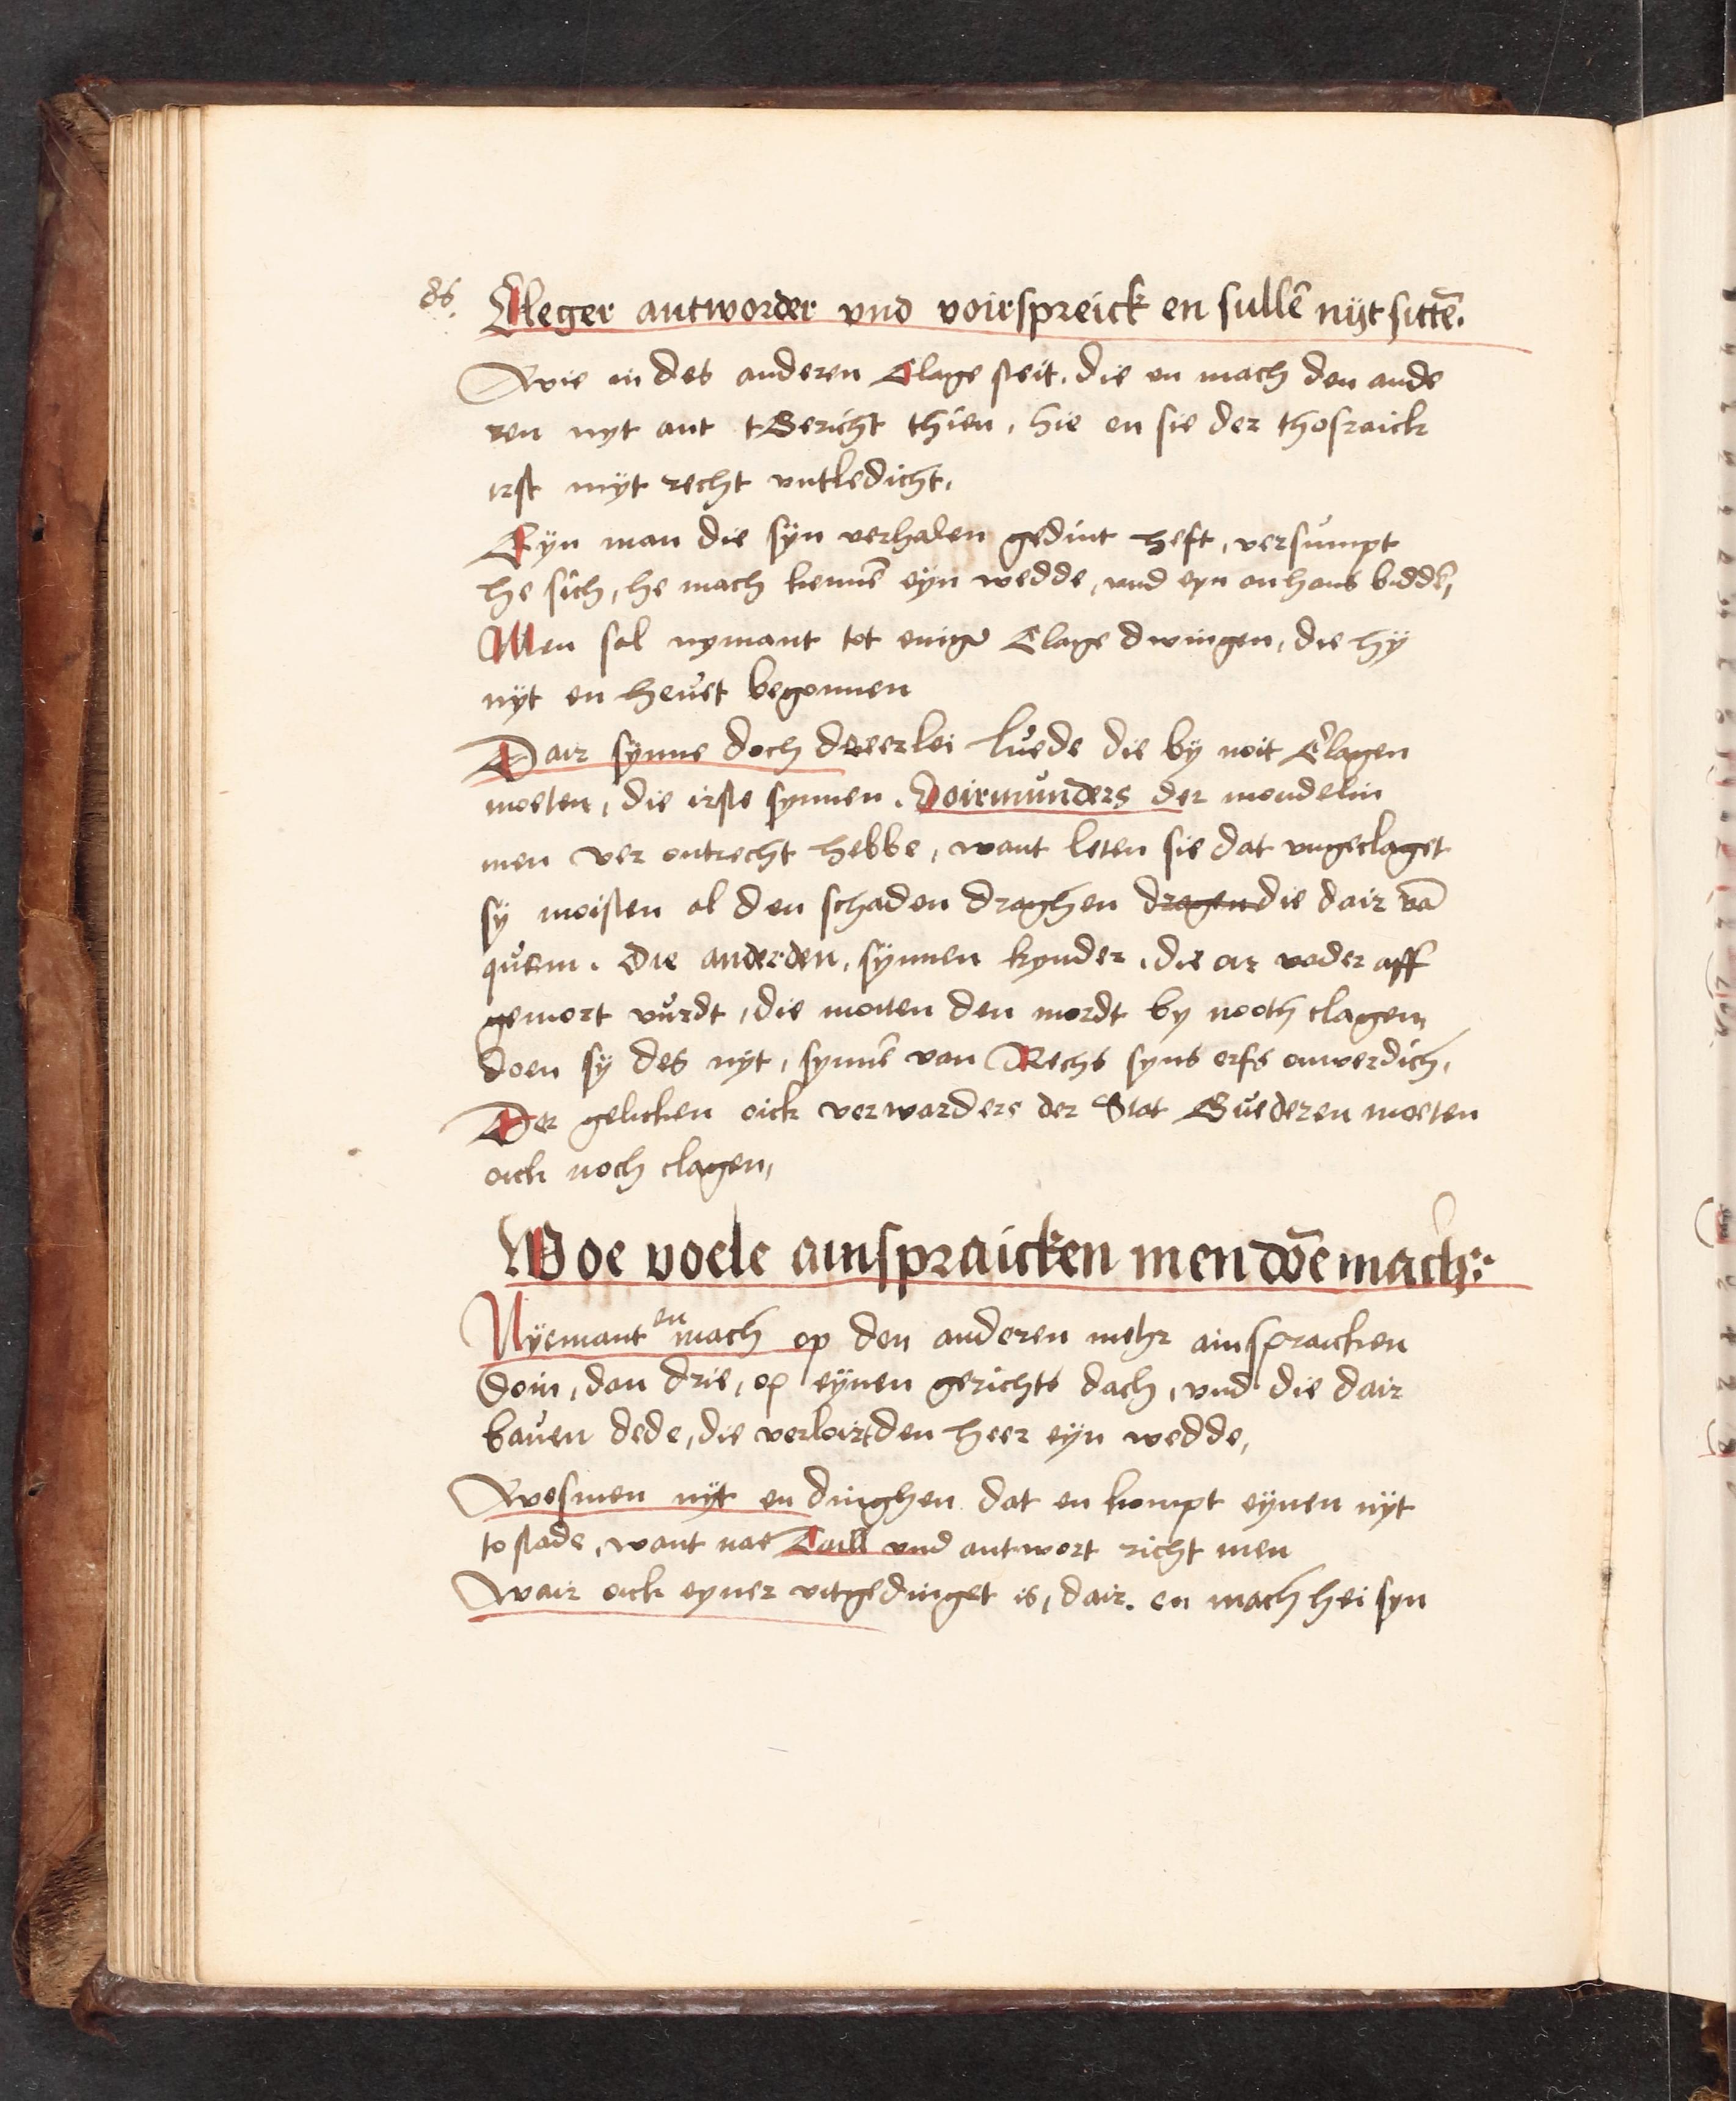 86.
Cleger antworder vnd voirspreick en sullē nijt sittē.
Wie in des anderen Clage steit. die en mach den ande
ren nyt ant tGericht thien, hie en sie der thosraick
irst mÿt recht vntledicht,
Eÿn man die sÿn verhalen gedint heft, versumpt
he sich, he mach kennē eÿn wedde, vnd eyn anhans biddē,
Men sal nymant tot eniger Clage dwingen, die hÿ
nÿt en heuet begonnen
Dair sÿnne doch dreerlei luede die by noit Clagen
moeten, die irste synnen. Voirmunders der mondelin
men ver ontrecht hebbe, want leten sie dat vngeclaget
sÿ moisten al den schaden draghen dragen die dair vā
quem. Die anderden, sÿnnen kynder, die ar vader aff
gemort vurdt, die moiten den mordt by nooth clagen,
doen sÿ des nÿt, synnē van Rechs syns erfs onwerdich,
Der gelicken oick verwarders der Stat Guederen moeten
oick noch clagen,
Woe voele ainspraicken men dōe mach:
Nÿemant en mach op den anderen mehr ainspraicken
doin, dan drie, op eÿnen gerichts dach, vnd die dair
bauen dede, die verloirt den heer eÿn wedde,
Wesmen nÿt en dinghen dat en kompt eÿnen nÿt
to stade, want nae Taill vnd antwort richt men
Wair oick eyner vitgedinget is, dair. en mach hei syn